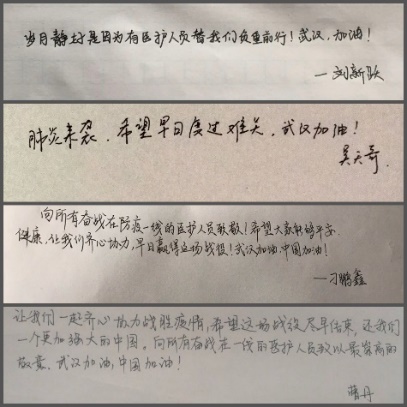 岁月静好是因为有医护人员替我们负重前行！武汉，加油！
—刘新跃
肺炎来袭，希望早日度过难关，武汉加油！
吴天奇
向所有奋战在防疫一线的医护人员致敬！希望大家都能平安
健康，让我们齐心协力，早日赢得这场战疫！武汉加油中国加油！
—刁鹏鑫
让我们一起齐心协力战胜疫情，希望这场战役尽早结束，还我们
一个更加强大的中国。向所有奋战在一线的医护人员致以最崇高的
敬意。武汉加油，中国加油！
蒋丹